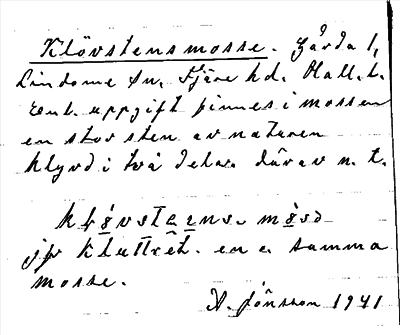 Klövstensmosse. Gårda 1,
Lindome sn, Fjäre hd. Hall. l.
Enl. uppgift finnes i mossen
en stor sten av naturen
klyvd i två delar därav n. t.
klövstens- måså
jfr Kluttret. en o. samma
mosse.
A. Jönsson 1941